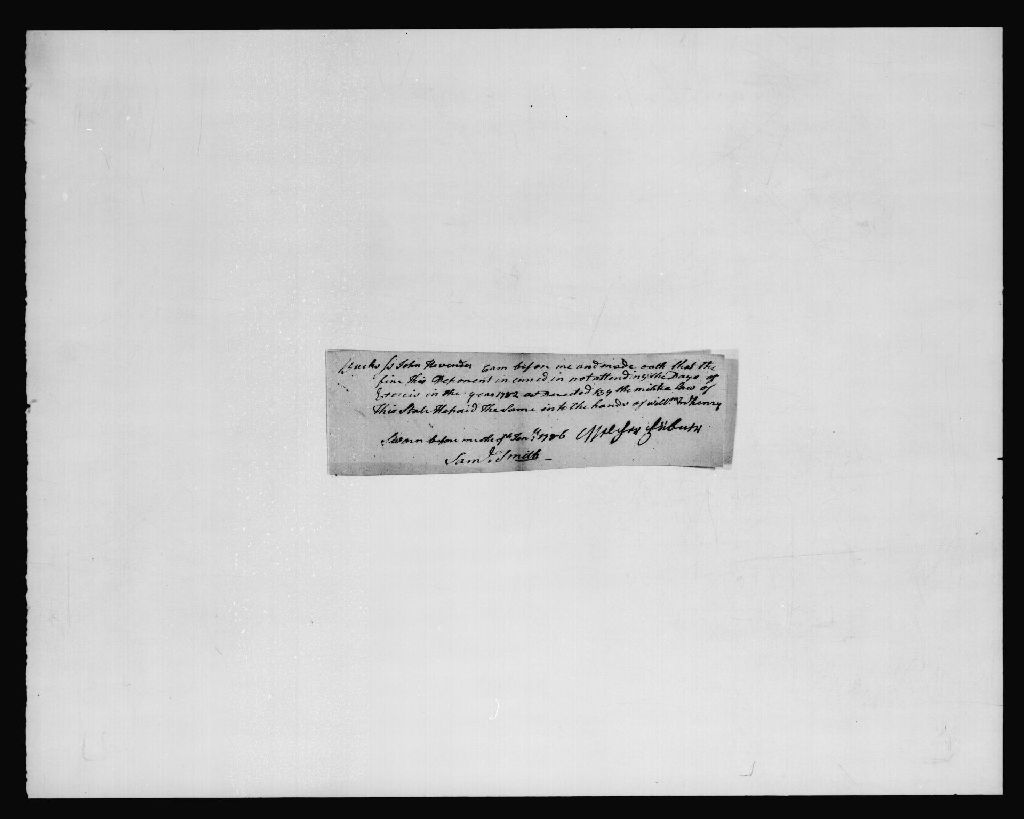 Bucks ss John cam before me and made oath that the
fine this Deponent incurred in not attending the Days of
Exercis in the year 1782 as Directed by the militia law of
this State He paid the Same into the hands of Will.m McHenry
Sworn before me the Jan.y 1786
Sam.l Smith